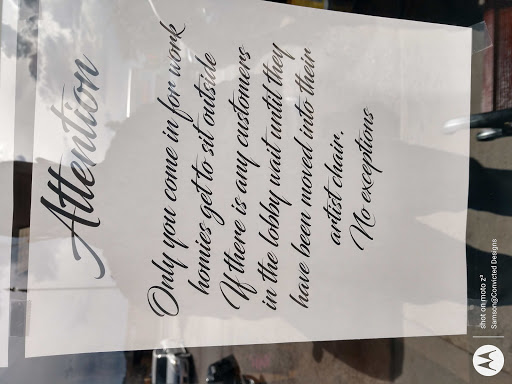 Attention
Only you come in for work
homies get to sit outside
If there is any customers
in the lobby wait until they
have been moved into their
artist chair.
No exceptions
shot on moto z⁴
Samson@Convicted Designs